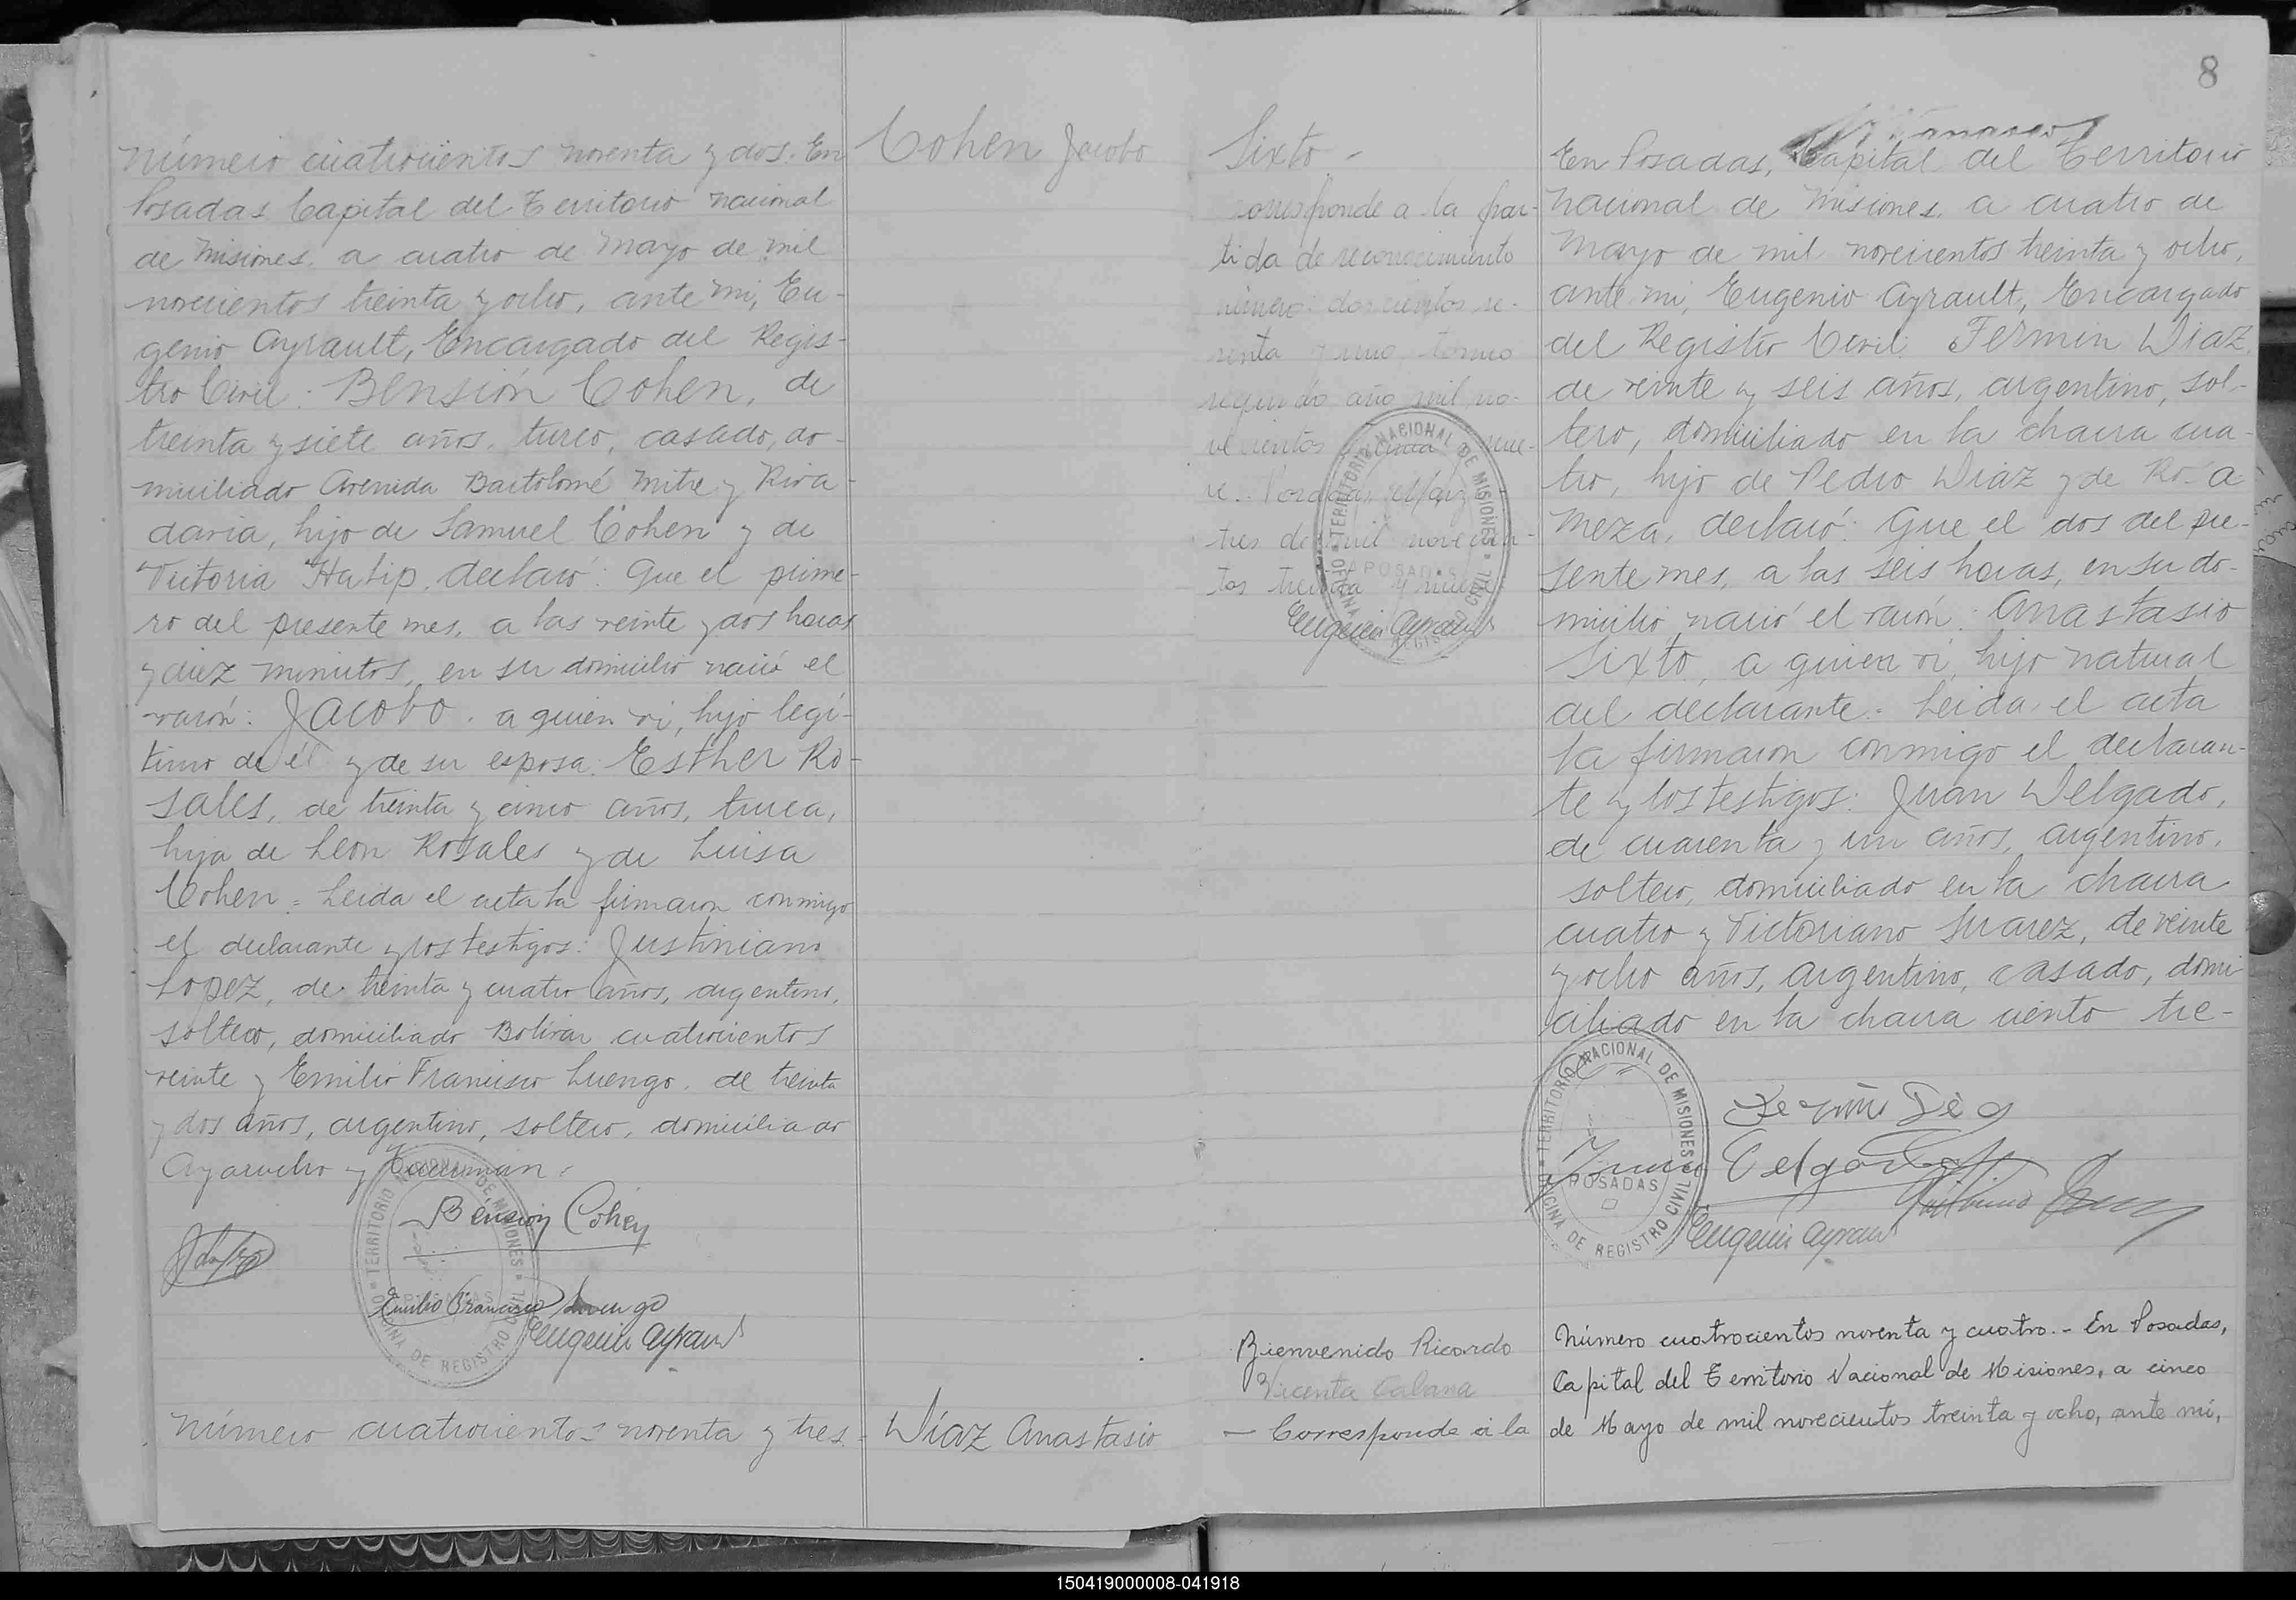 Número cuatrocientos noventa y dos. En
Posadas Capital del Territorio nacional
de Misiones, a cuatro de Mayo de mil
novecientos treinta y ocho, ante mi, Eu-
genio Ayrault, Encargado del Regis-
tro Civil: Bensión Cohen, de
treinta y siete años, turco, casado, do-
miciliado Avenida Bartolomé Mitre y Riva-
davia, hijo de Samuel Cohen y de
Victoria Hatip, declaró: Que el prime-
ro del presente mes, a las veinte y dos horas
y diez minutos, en su domicilio nació el
varón: Jacobo, a quien vi, hijo legí-
timo de él y de su esposa: Esther Ro-
sales, de treinta y cinco años, turca,
hija de Leon Rosales y de Luisa
Cohen = Leida el acta la firmaron conmigo
el declarante y los testigos: Justiniano
Lopez, de treinta y cuatro años, argentino,
soltero, domiciliado Bolivar cuatrocientos
veinte y Emilio Francisco Luengo, de treinta
y dos años, argentino, soltero, domiciliado
Ayacucho y Tucuman.
Bension Cohen
Emilio Francisco Luengo
Eugenio Ayrault
TERRITORIO NACIONAL DE MISIONES
OFICINA DE REGISTRO CIVIL
POSADAS
Número cuatrocientos noventa y tres -
Cohen Jacobo
Díaz Anastasio
8
Sixto -
corresponde a la par-
tida de reconocimiento
número: doscientos se-
senta y uno, tomo
segundo año mil no-
vecientos treinta y nue-
ve. Posadas, Marzo
tres de mil novecien-
tos treinta y nueve
Eugenio Ayrault
TERRITORIO NACIONAL DE MISIONES
OFICINA DE REGISTRO CIVIL
POSADAS
En Posadas, Capital del Territorio
nacional de Misiones, a cuatro de
Mayo de mil novecientos treinta y ocho,
ante mi, Eugenio Ayrault, Encargado
del Registro Civil: Fermin Diaz,
de veinte y seis años, argentino, sol-
tero, domiciliado en la chacra cua-
tro, hijo de Pedro Diaz y de Rosa
Meza, declaró: Que el dos del pre-
sente mes, a las seis horas, en su do-
micilio nació el varón: Anastasio
Sixto, a quien vi, hijo natural
del declarante = Leida el acta
la firmaron conmigo el declaran-
te y los testigos: Juan Delgado,
de cuarenta y un años, argentino,
soltero, domiciliado en la chacra
cuatro y Victoriano Suarez, de veinte
y ocho años, argentino, casado, domi-
ciliado en la chacra ciento tre-
ce
Fermin Diaz
Juan Delgado
Eugenio Ayrault
TERRITORIO NACIONAL DE MISIONES
OFICINA DE REGISTRO CIVIL
POSADAS
Bienvenido Ricardo
Vicenta Cabana
- Corresponde a la
Número cuatrocientos noventa y cuatro. - En Posadas,
Capital del Territorio Nacional de Misiones, a cinco
de Mayo de mil novecientos treinta y ocho, ante mí,
150419000008-041918